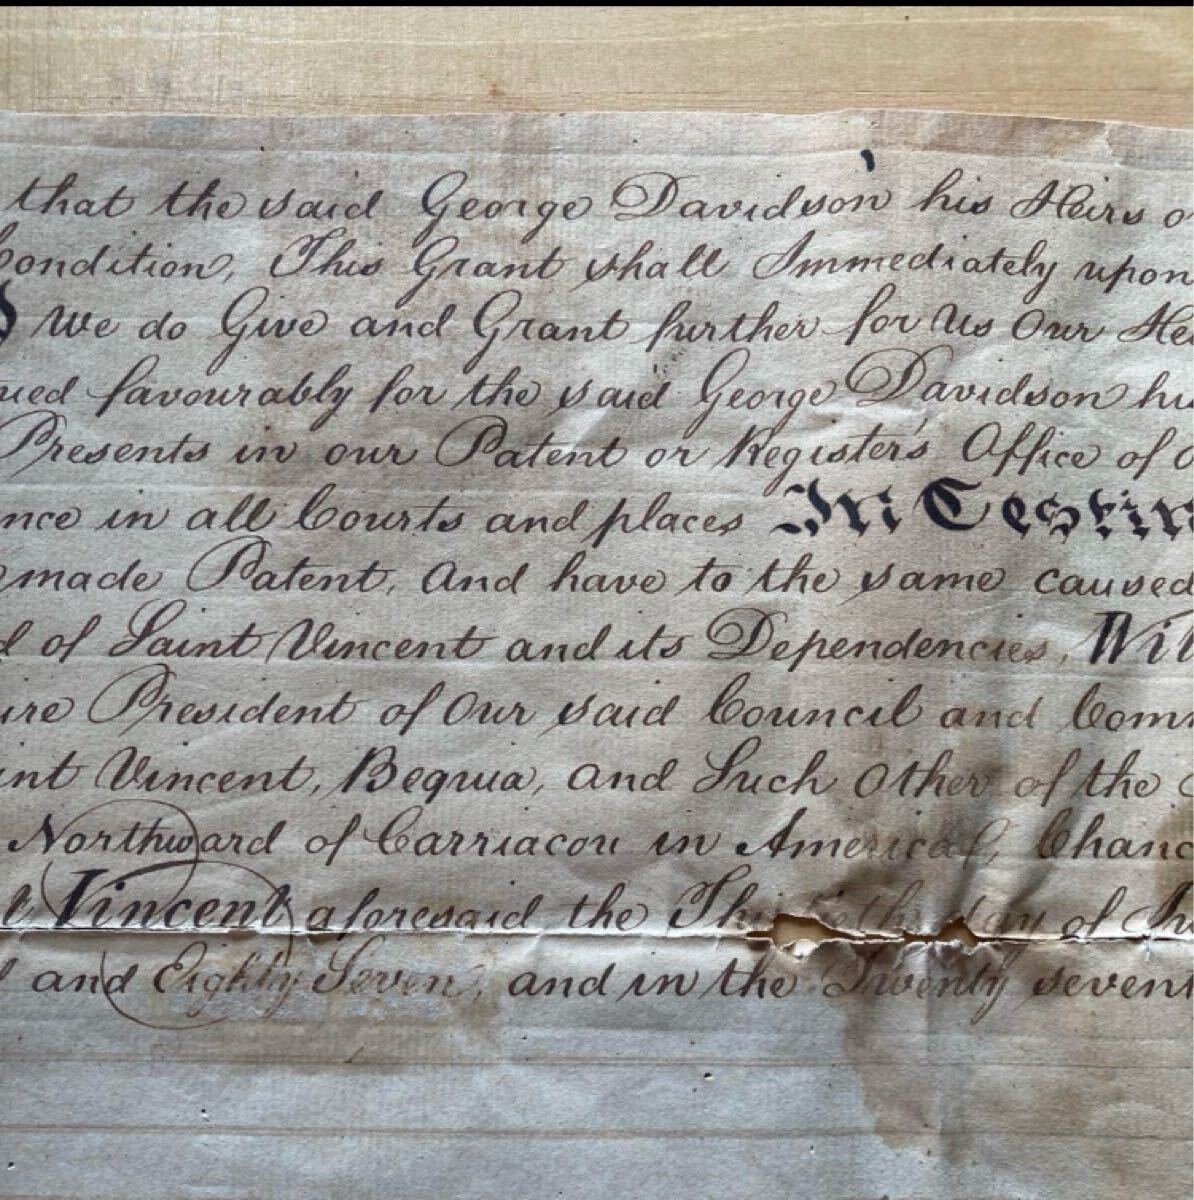 that the said George Davidson his Heirs o
Condition, This Grant shall Immediately upon
We do Give and Grant further for Us Our He
ued favourably for the said George Davidson hi
Presents in our Patent or Register's Office of
nce in all Courts and places In Testim
made Patent, And have to the same caused
d of Saint Vincent and its Dependencies, Wil
ire President of Our said Council and Com
int Vincent, Bequia, and Such Other of the
Northward of Carriacou in America, Chanc
t Vincent aforesaid the day of
d and Eighty Seven, and in the Twenty sevent